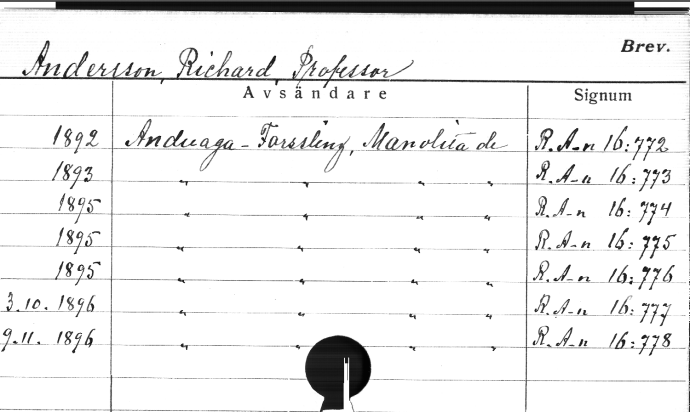 Brev.
Andersson, Richard, Professor
Avsändare Signum
1892 Anduaga-Forssling, Manolita de R. A-n 16:772
1893 " " " " R. A-n 16:773
1895 " " " " R. A-n 16:774
1895 " " " " R. A-n 16:775
1895 " " " " R. A-n 16:776
3.10. 1896 " " " " R. A-n 16:777
9.11. 1896 " " " " R. A-n 16:778